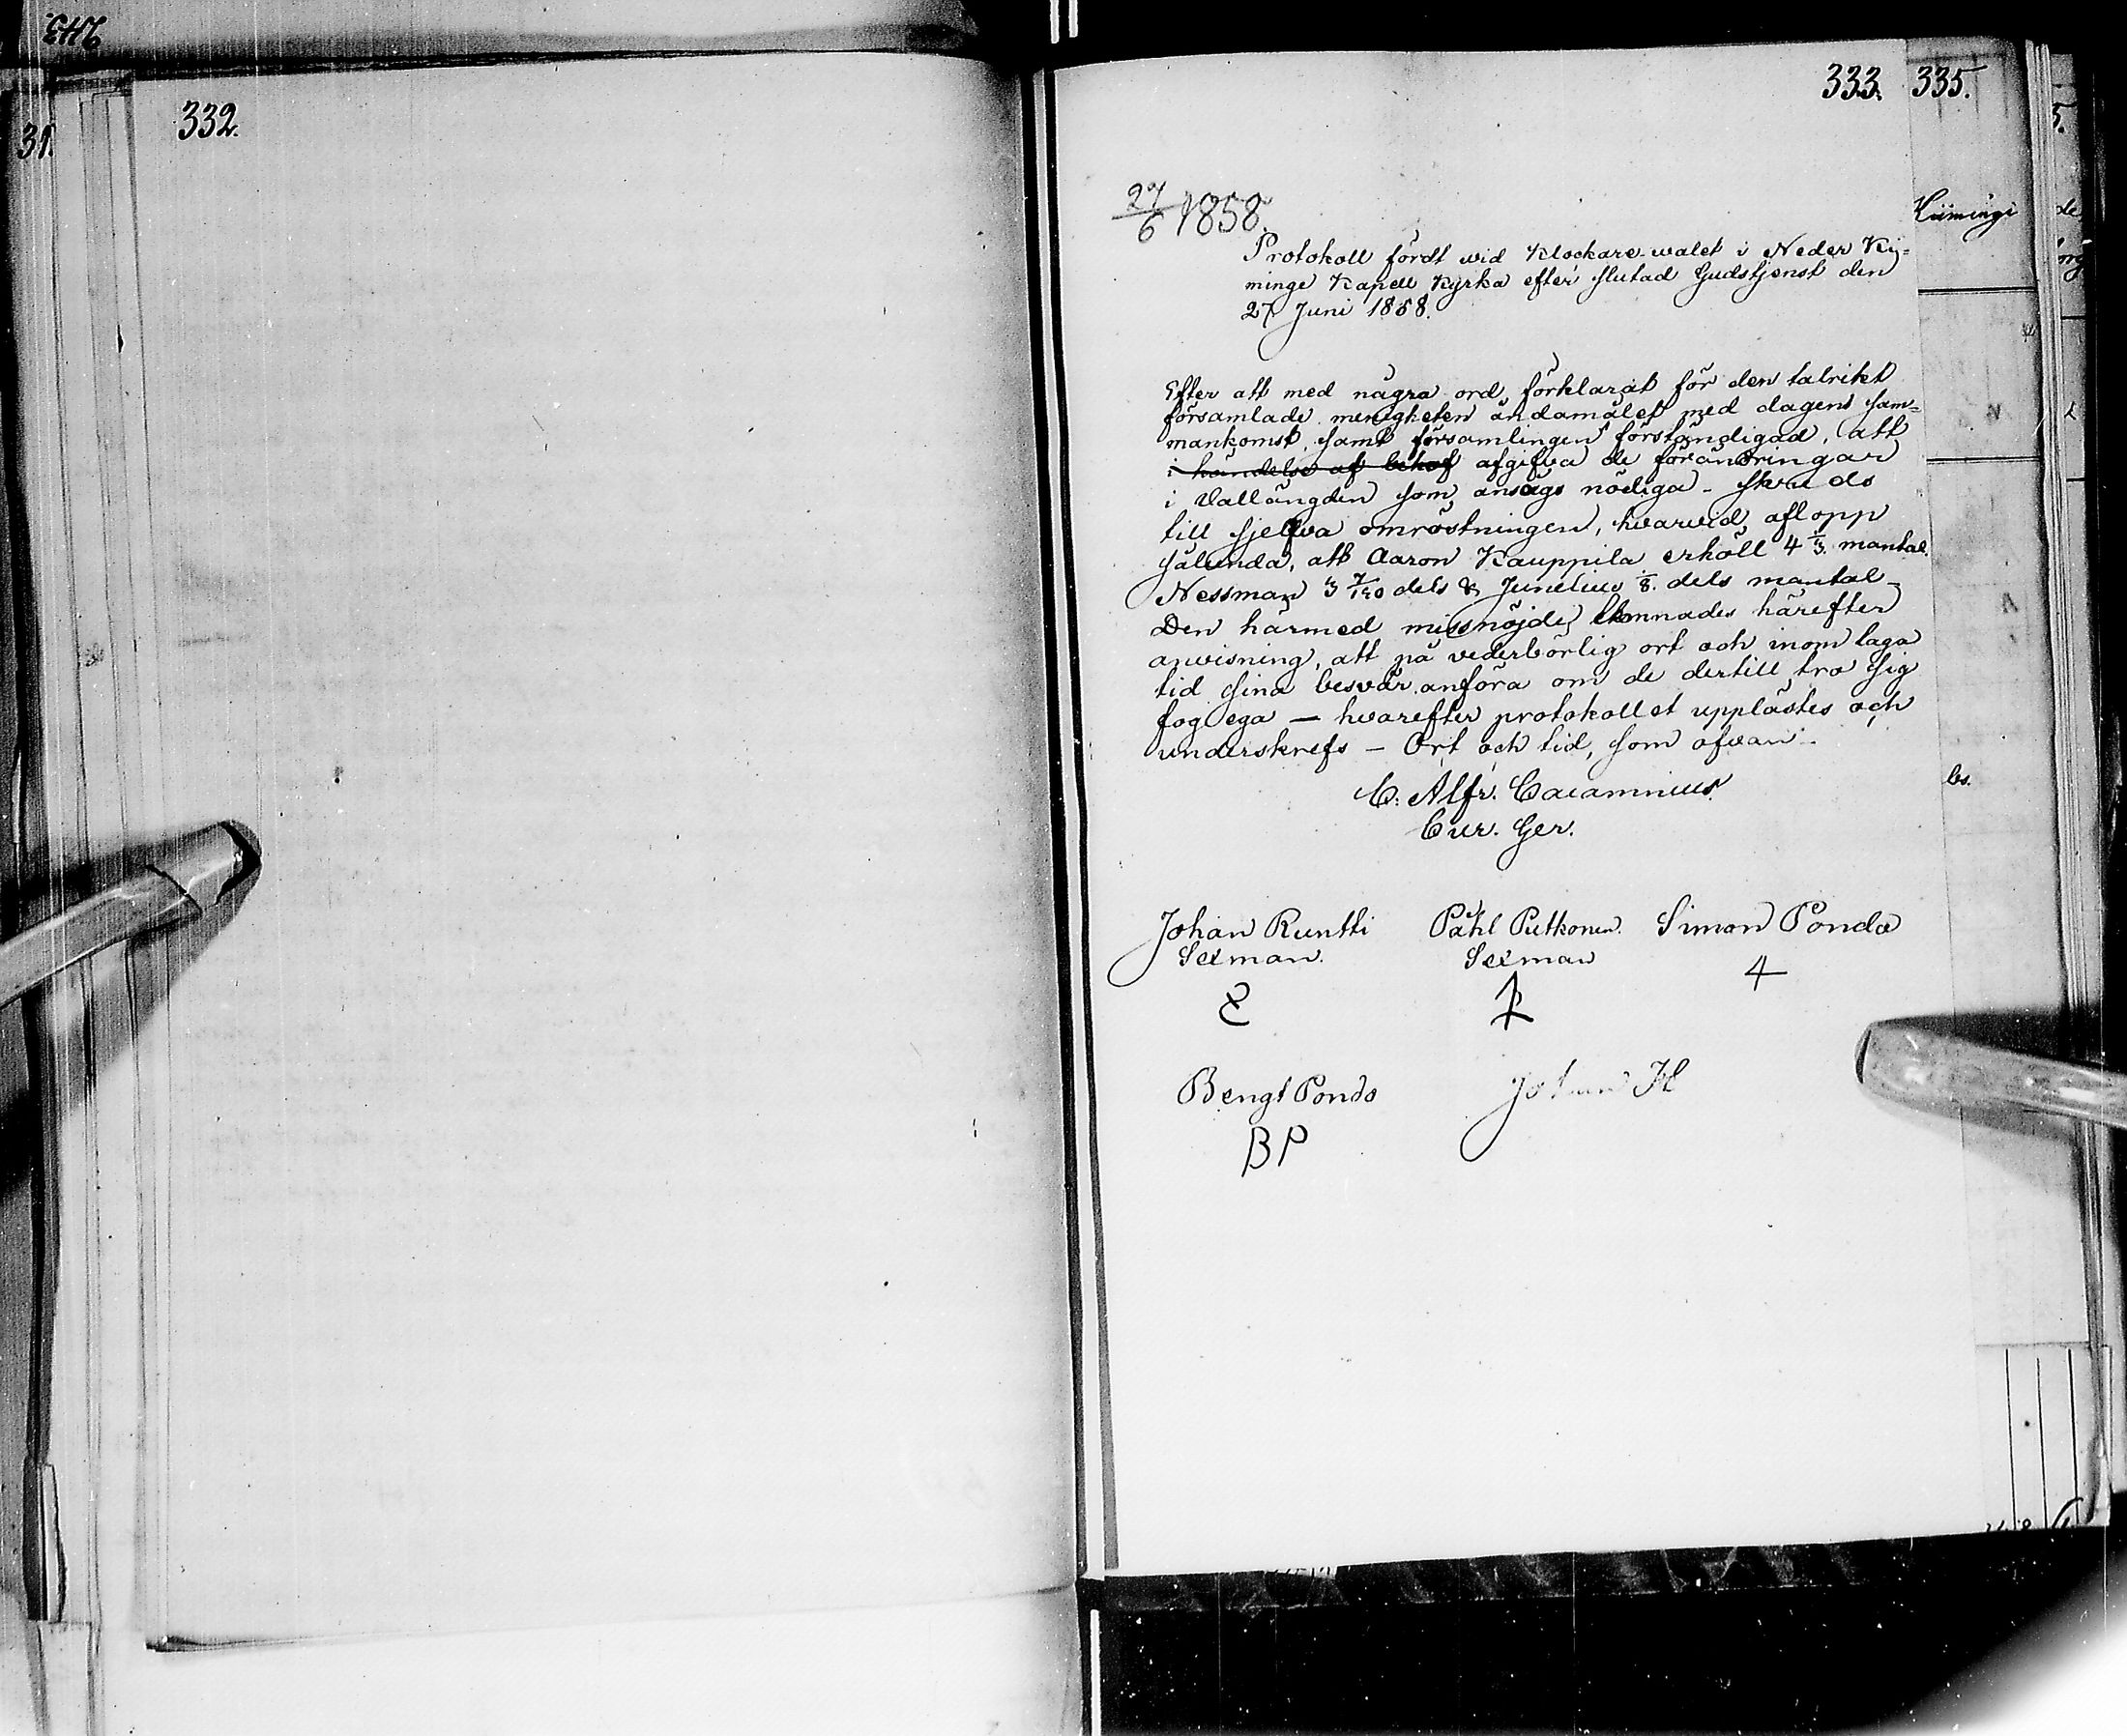 243
31.
332.
333.
335.
27/6 1858.
Protokoll fördt wid Klockare-walet i Neder Ki=
minge Kapell Kyrka efter slutad Gudstjenst den
27 Juni 1858.
Efter att med några ord förklarat för den talrikt
församlade menigheten ändamålet med dagens sam=
mankomst, samt församlingen förständigad, att
i händelse af behof afgifva de förändringar
i Vallängden som ansågs nödiga - skreds
till sjelfva omröstningen, hvarvid aflopp
sålunda, att Aaron Kauppila erhöll 4 1/3 mantal.
Nessman 3 7/120 dels & Junelius 1/8. dels mantal -
Den härmed missnöjde lemnades härefter
anvisning, att på vederbörlig ort och inom laga
tid sina besvär anföra om de dertill tro sig
fog ega — hvarefter protokollet upplästes och
underskrefs - Ort och tid, som ofvan -
C. Alfr. Cajanus
Cur. Ger.
Johan Runtti Påhl Putkonen. Simon Pondo
Sexman. Sexman
Bengt Pondo Johan H
BP
Kiimingi